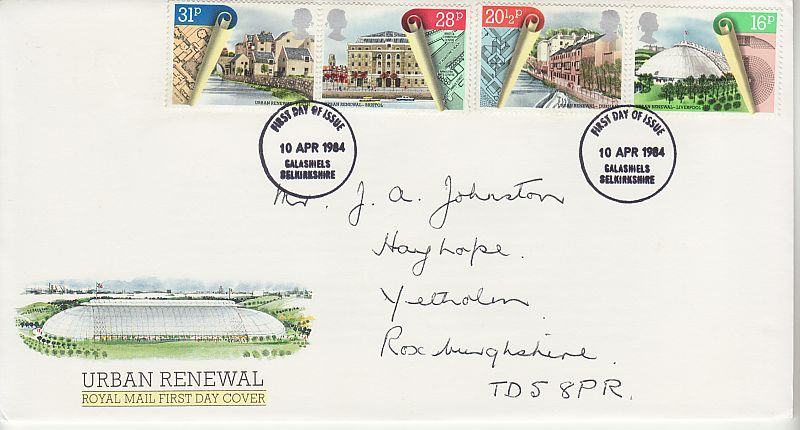 31p
28p
20½p
16p
URBAN RENEWAL
URBAN RENEWAL—BRISTOL
URBAN RENEWAL—
URBAN RENEWAL—LIVERPOOL
FIRST DAY OF ISSUE
10 APR 1984
GALASHIELS
SELKIRKSHIRE
FIRST DAY OF ISSUE
10 APR 1984
GALASHIELS
SELKIRKSHIRE
Mr. J. A. Johnston
Hayhope.
Yetholm
Roxburghshire.
TD5 8PR.
URBAN RENEWAL
ROYAL MAIL FIRST DAY COVER